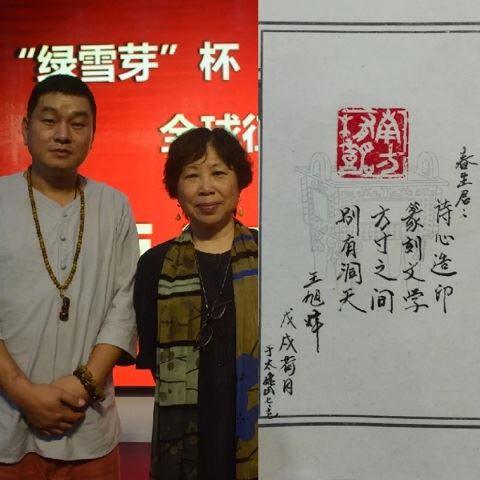 “绿雪芽”杯
全球
春生君:
诗心造印
篆刻文学
方寸之间
别有洞天
王旭烽
戊戌荷月
于太姥山